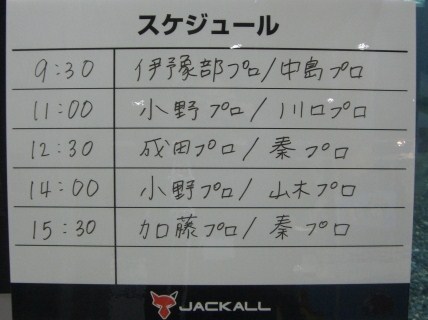 スケジュール
9:30 伊豫部プロ/中島プロ
11:00 小野プロ/川口プロ
12:30 成田プロ/秦プロ
14:00 小野プロ/山木プロ
15:30 加藤プロ/秦プロ
JACKALL